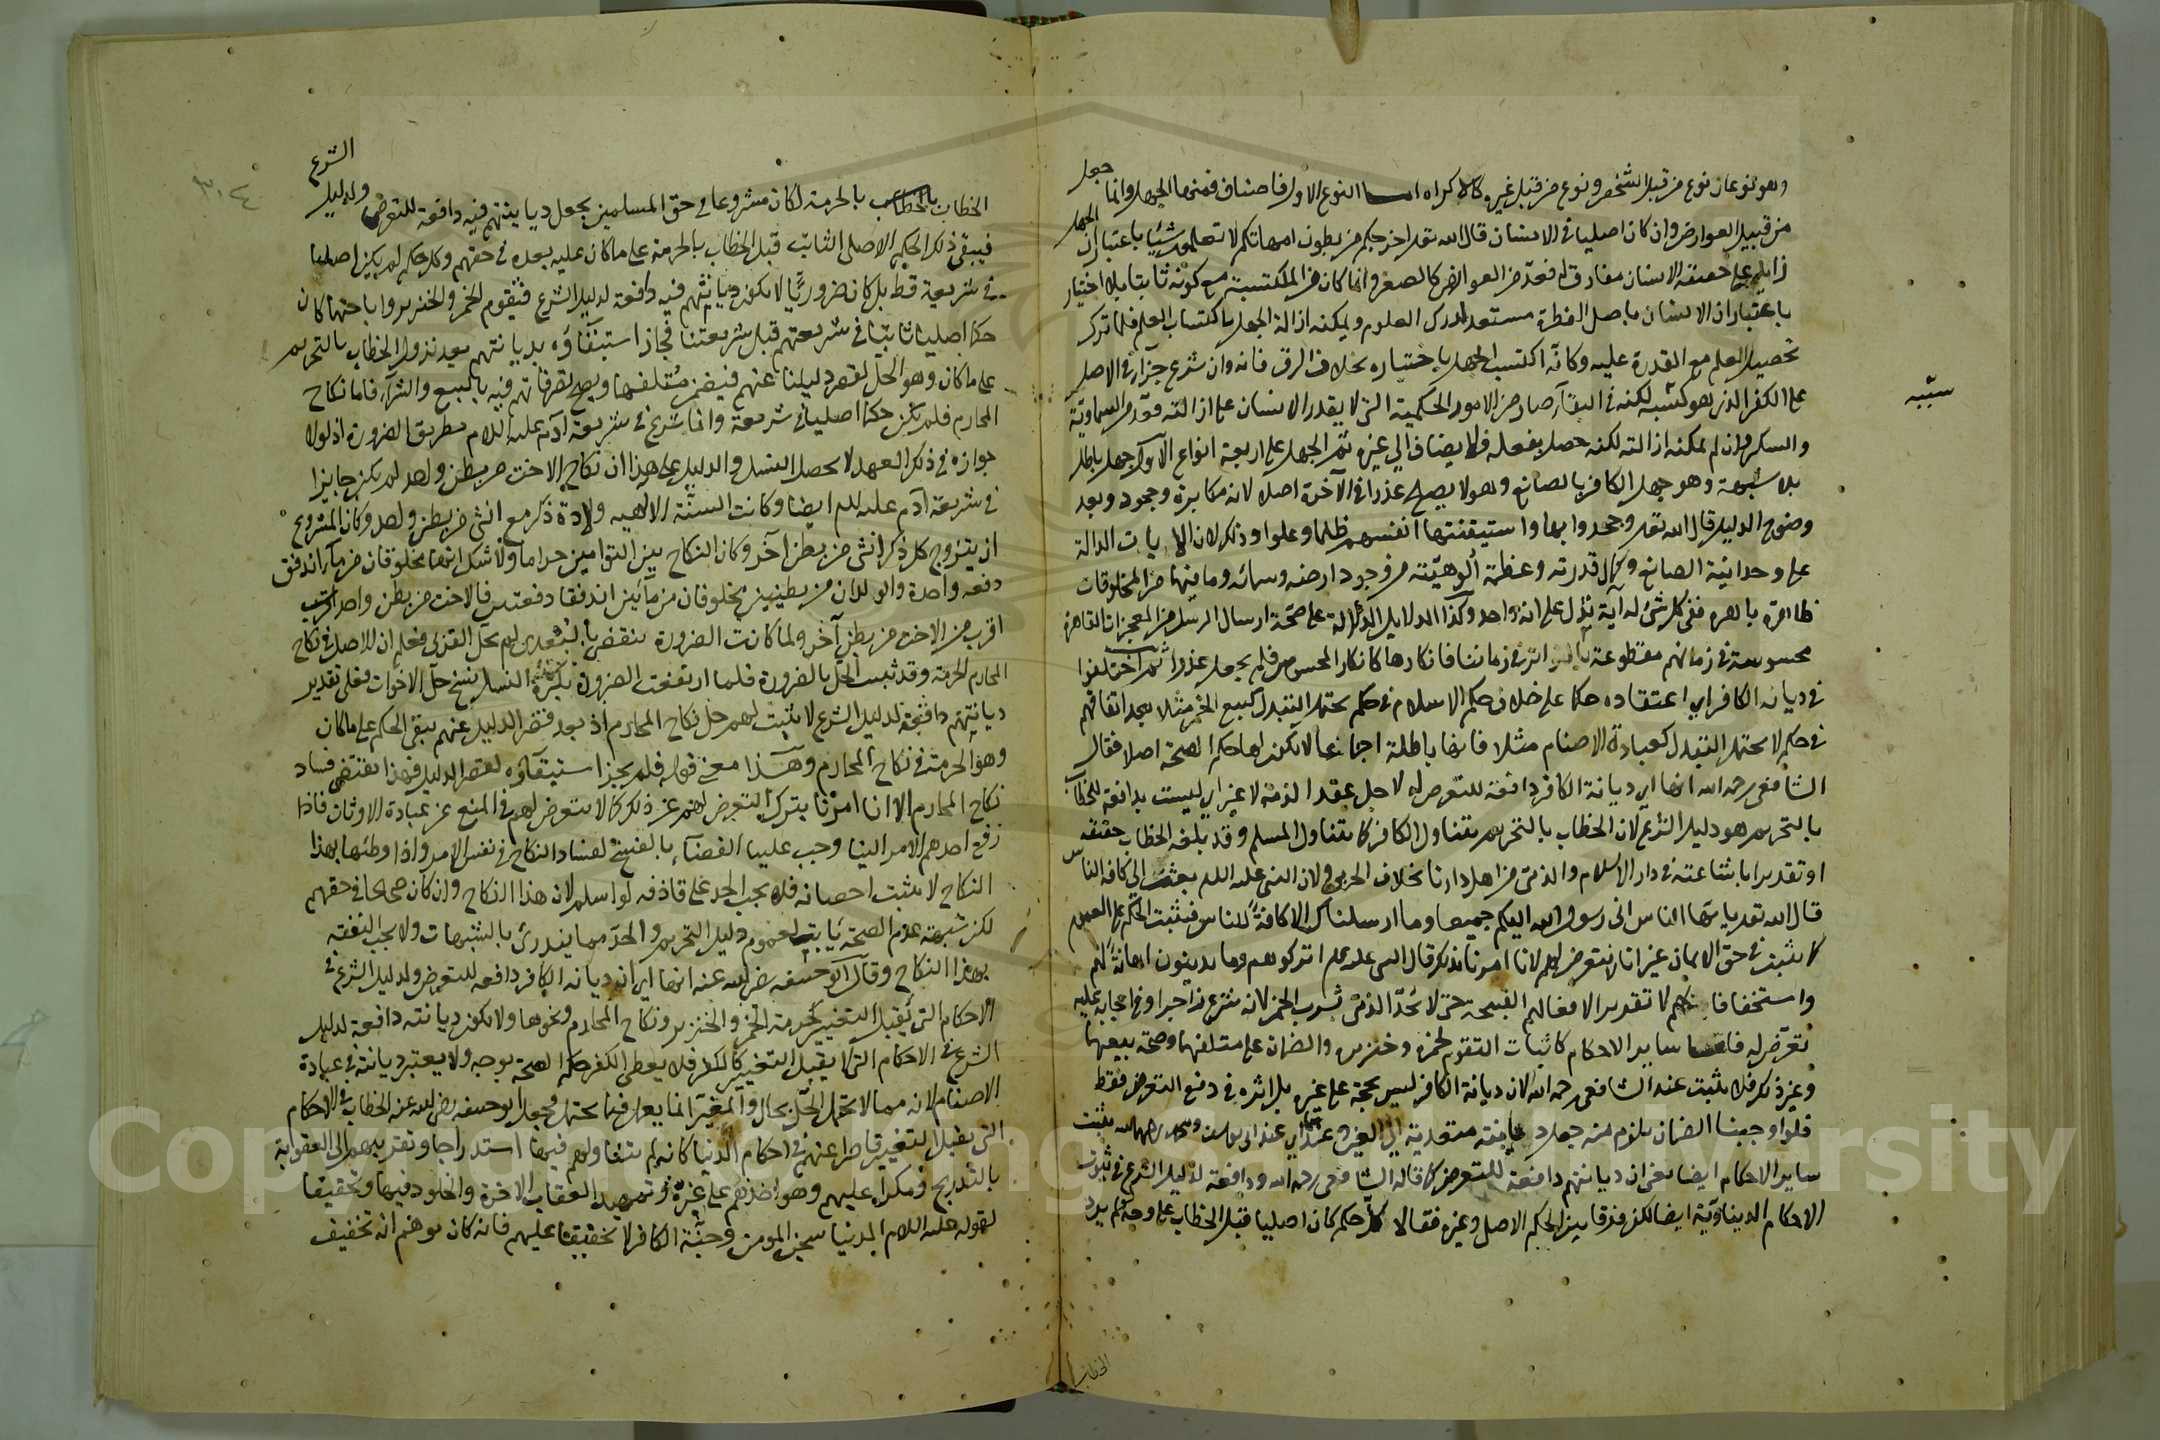 وهو نوعان نوع من قبل الشخص ونوع من قبل غيره كالاكراه اما النوع الاول فاصناف فمنها الجهل وانما جعل
من قبيل العوارض وان كان اصليا في الانسان قال الله تعالى اخرجكم من بطون امهاتكم لا تعلمون شيئا باعتبار ان الجهل
زايد على حقيقة الانسان مفارق له فعد من العوارض كالصغر وانما كان من المكتسبة مع كونه ثابتا بلا اختيار
باعتبار ان الانسان باصل الفطرة مستعد لدرك العلوم ويمكنه ازالة الجهل باكتساب العلم فلما ترك
تحصيل العلم مع القدرة عليه وكانه اكتسب الجهل باختياره بخلاف الرق فانه وان شرع جزاء في الاصل
على الكفر الذي هو كسبه لكنه في البقاء صار من الامور الحكمية التي لا يقدر الانسان على ازالته فعد من السماوية
والسكر وان لم يمكنه ازالته لكنه حصل بفعله فلا يضاف الى غيره ثم الجهل على اربعة انواع الاول جهل باطل
بلا شبهة وهو جهل الكافر بالصانع وهو لا يصلح عذرا في الآخرة اصلا لانه مكابرة وجحود وبعد
وضوح الدليل قال الله تعالى وجحدوا بها واستيقنتها انفسهم ظلما وعلوا وذلك لان الايات الدالة
على وحدانية الصانع وكمال قدرته وعظمة ألوهيته من وجود ارضه وسمائه وما بينها من المخلوقات
ظاهرة باهرة ففي كل شئ له آية تدل على انه واحد وكذا الدلايل الدالة على صحة ارسال الرسل من المعجزات القاهرة
محسوسة في زمانهم مقطوعة بالتواتر في زماننا فانكارها كانكار المحسوس فلم يجعل عذرا ثم اختلفوا
في ديانة الكافر اي اعتقاده حكما على خلاف حكم الاسلام في حكم يحتمل التبدل كبيع الخمر مثلا بعد اتفاقهم
في حكم لا يحتمل التبدل كعبادة الاصنام مثلا فانها باطلة اجماعا لا يكون لها حكم الصحة اصلا فقال
الشافعي رحمه الله انها اي ديانة الكافر دافعة للتعرض له لاجل عقد الذمة لا غير اي ليست بدافعة للخطاب
بالتحريم هو دليل الشرع لان الخطاب بالتحريم يتناول الكافر كما يتناول المسلم وقد بلغه الخطاب حقيقة
او تقديرا باشاعته في دار الاسلام والذمي من اهل دارنا بخلاف الحربي ولان النبي عليه السلام بعث الى كافة الناس
قال الله تعالى يا ايها الناس اني رسول الله اليكم جميعا وما ارسلناك الا كافة للناس فيثبت الحكم على العموم
لا يثبت في حق الايمان غير انا لا نتعرض لهم لانا امرنا بذلك قال النبي عليه السلام اتركوهم وما يدينون اهانة لهم
واستخفافا بهم لا تقديرا لافعالهم القبيحة حتى لا نحد الذمي بشرب الخمر لانه شرع زاجرا وفي ايجابه عليه
تعرض له فاما ساير الاحكام كاثبات التقوم لخمره وخنزيره والضمان على متلفها وصحة بيعها
وغير ذلك فلا يثبت عند الشافعي رحمه الله لان ديانة الكافر ليس بحجة على غيره بل اثره في دفع التعرض فقط
فلو اوجبنا الضمان يلزم منه جعل ديانته متعدية الى الغير وعندنا اي عند ابي يوسف ومحمد رحمهما الله يثبت
ساير الاحكام ايضا يعني ان ديانتهم دافعة للتعرض كما قاله الشافعي رحمه الله ودافعة لدليل الشرع في ثبوت
الاحكام الدنياوية ايضا لكن فرقا بين الحكم الاصلي وغيره فقالا كل حكم كان اصليا قبل الخطاب على وجه لم يرد
الخطاب
سببه
٣٠٤
الخطاب بالحرمة لكان مشروعا في حق المسلمين يجعل ديانتهم فيه دافعة للتعرض ولدليل الشرع
فيبقى ذلك الحكم الاصلي الثابت قبل الخطاب بالحرمة على ما كان عليه بعده في حقهم وكل حكم لم يكن اصليا
في شريعة قط بل كان ضروريا لا يكون ديانتهم فيه دافعة لدليل الشرع فتقوم الخمر والخنزير واباحتها كان
حكما اصليا ثابتا في شريعتهم قبل شريعتنا فجاز استبقاؤه بديانتهم بعد نزول الخطاب بالتحريم
على ما كان وهو الحل لقصر دليلنا عنهم فيضمن متلفها ويصح تصرفاتهم فيه بالبيع والشراء فاما نكاح
المحارم فلم يكن حكما اصليا في شريعة وانما شرع في شريعة آدم عليه السلام بطريق الضرورة اذ لولا
جوازه في ذلك العهد لا يحصل النسل والدليل على هذا ان نكاح الاخت من بطن واحد لم يكن جايزا
في شريعة آدم عليه السلام ايضا وكانت السنة الالهية ولادة ذكر مع انثى من بطن واحد وكان المشروع
ان يتزوج كل ذكر انثى من بطن آخر وكان النكاح بين التوامين حراما ولا شك انهما مخلوقان من ماء اندفق
دفعة واحدة والولدان من بطنين مخلوقان من مائين اندفقا دفعتين فالاخت من بطن واحد
اقرب من الاخت من بطن آخر ولما كانت الضرورة تنقضي بالبعدى لم تحل القربى فعلم ان الاصل في نكاح
المحارم الحرمة وقد ثبت الحل بالضرورة فلما ارتفعت الضرورة بكثرة النسل نسخ حل الاخوات فعلى تقدير
ديانتهم دافعة لدليل الشرع لا يثبت لهم حل نكاح المحارم اذ بعد قصر الدليل عنهم يبقى الحكم على ما كان
وهو الحرمة في نكاح المحارم وهذا معنى قوله فلم يجز استبقاؤه لقصر الدليل فهذا يقتضي فساد
نكاح المحارم الا انا امرنا بترك التعرض لهم عن ذلك كما لا نتعرض لهم في المنع عن عبادة الاوثان فاذا
رفع احدهم الامر الينا وجب علينا القضاء بالفسخ لفساد النكاح في نفس الامر واذا وطئها بهذا
النكاح لا يثبت احصانه فلا يجب الحد على قاذفه لو اسلم لان هذا النكاح وان كان صحيحا في حقهم
لكن شبهة عدم الصحة ثابت لعموم دليل التحريم والحد مما يندرئ بالشبهات ولا يجب النفقة
بهذا النكاح وقال ابو حنيفة رضي الله عنه انها اي ان ديانة الكافر دافعة للتعرض ولدليل الشرع في
الاحكام التي تقبل التغيير كحرمة الخمر والخنزير ونكاح المحارم ونحوها ولا يكون ديانته دافعة لدليل
الشرع في الاحكام التي لا يقبل التغيير كالكفر فلا يعطي الكفر حكم الصحة بوجه ولا يعتبر ديانته في عبادة
الاصنام لانه مما لا يحتمل الحل بحال والمغير انما يعمل فيما يحتمل وجعل ابو حنيفة رضي الله عنه الخطاب في الاحكام
التي يقبل التغيير قاصرا عنهم في احكام الدنيا كانه لم يتناولهم فيها استدراجا وتقريبهم الى العقوبة
بالتدريج ومكرا عليهم وهو اخذهم على غرة وتمهيد العقاب الاخرة والخلود فيها وتحقيقا
لقوله عليه السلام الدنيا سجن المومن وجنة الكافر لا تخفيفا عليهم فانه كان يوهم انه تخفيف
Copyright © King Saud University